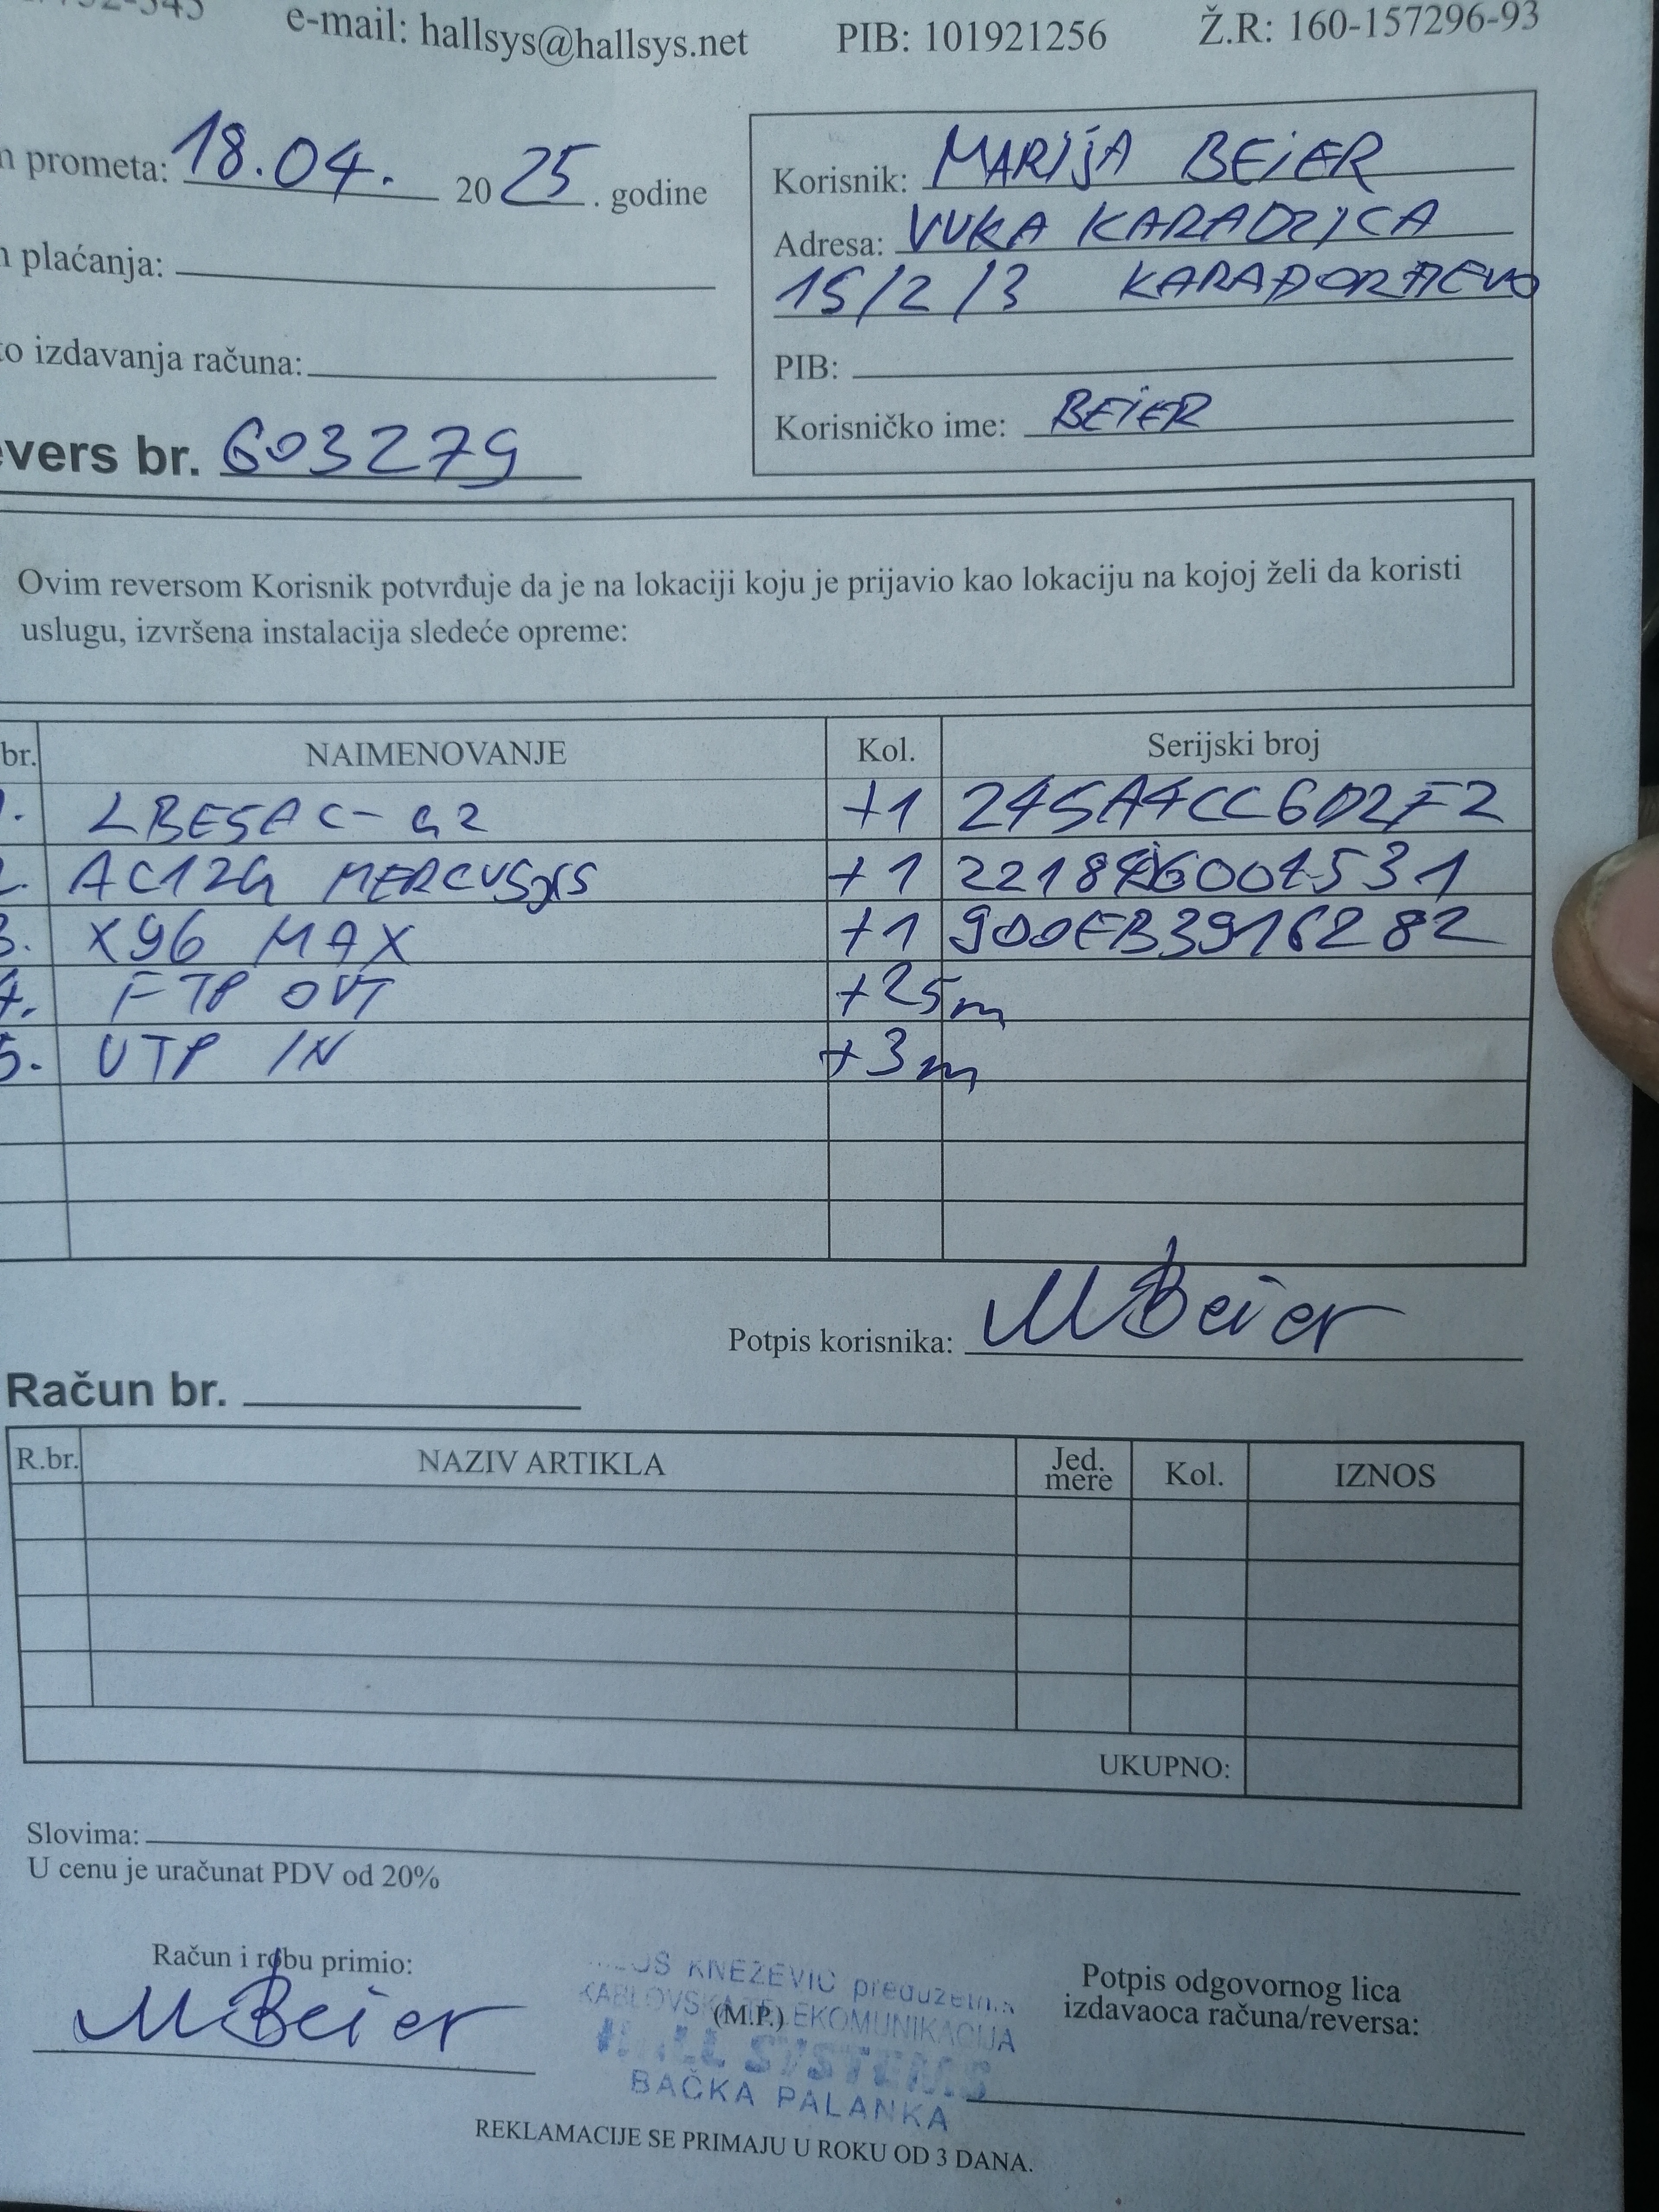 e-mail: hallsys@hallsys.net PIB: 101921256 Ž.R: 160-157296-93
prometa: 18.04. 2025. godine
plaćanja:
izdavanja računa:
vers br. 603279
Korisnik: MARIJA BEIER
Adresa: VUKA KARADZICA
15/2/3 KARAĐORĐEVO
PIB:
Korisničko ime: BEIER
Ovim reversom Korisnik potvrđuje da je na lokaciji koju je prijavio kao lokaciju na kojoj želi da koristi
uslugu, izvršena instalacija sledeće opreme:
br. NAIMENOVANJE Kol. Serijski broj
1. LBE5AC-G2 +1 245A4CC6D2F2
2. AC12G MERCUSYS +1
3. X96 MAX +1 900EB3916282
4. FTP OUT +25m
5. UTP IN +3m
Potpis korisnika: MBeier
Račun br.
R.br. NAZIV ARTIKLA Jed. mere Kol. IZNOS
UKUPNO:
Slovima:
U cenu je uračunat PDV od 20%
Račun i robu primio:
MBeier
KNEŽEVIĆ preduzetnik
KABLOVSKA TELEKOMUNIKACIJA
(M.P.)
HALL SYSTEMS
BAČKA PALANKA
Potpis odgovornog lica
izdavaoca računa/reversa:
REKLAMACIJE SE PRIMAJU U ROKU OD 3 DANA.